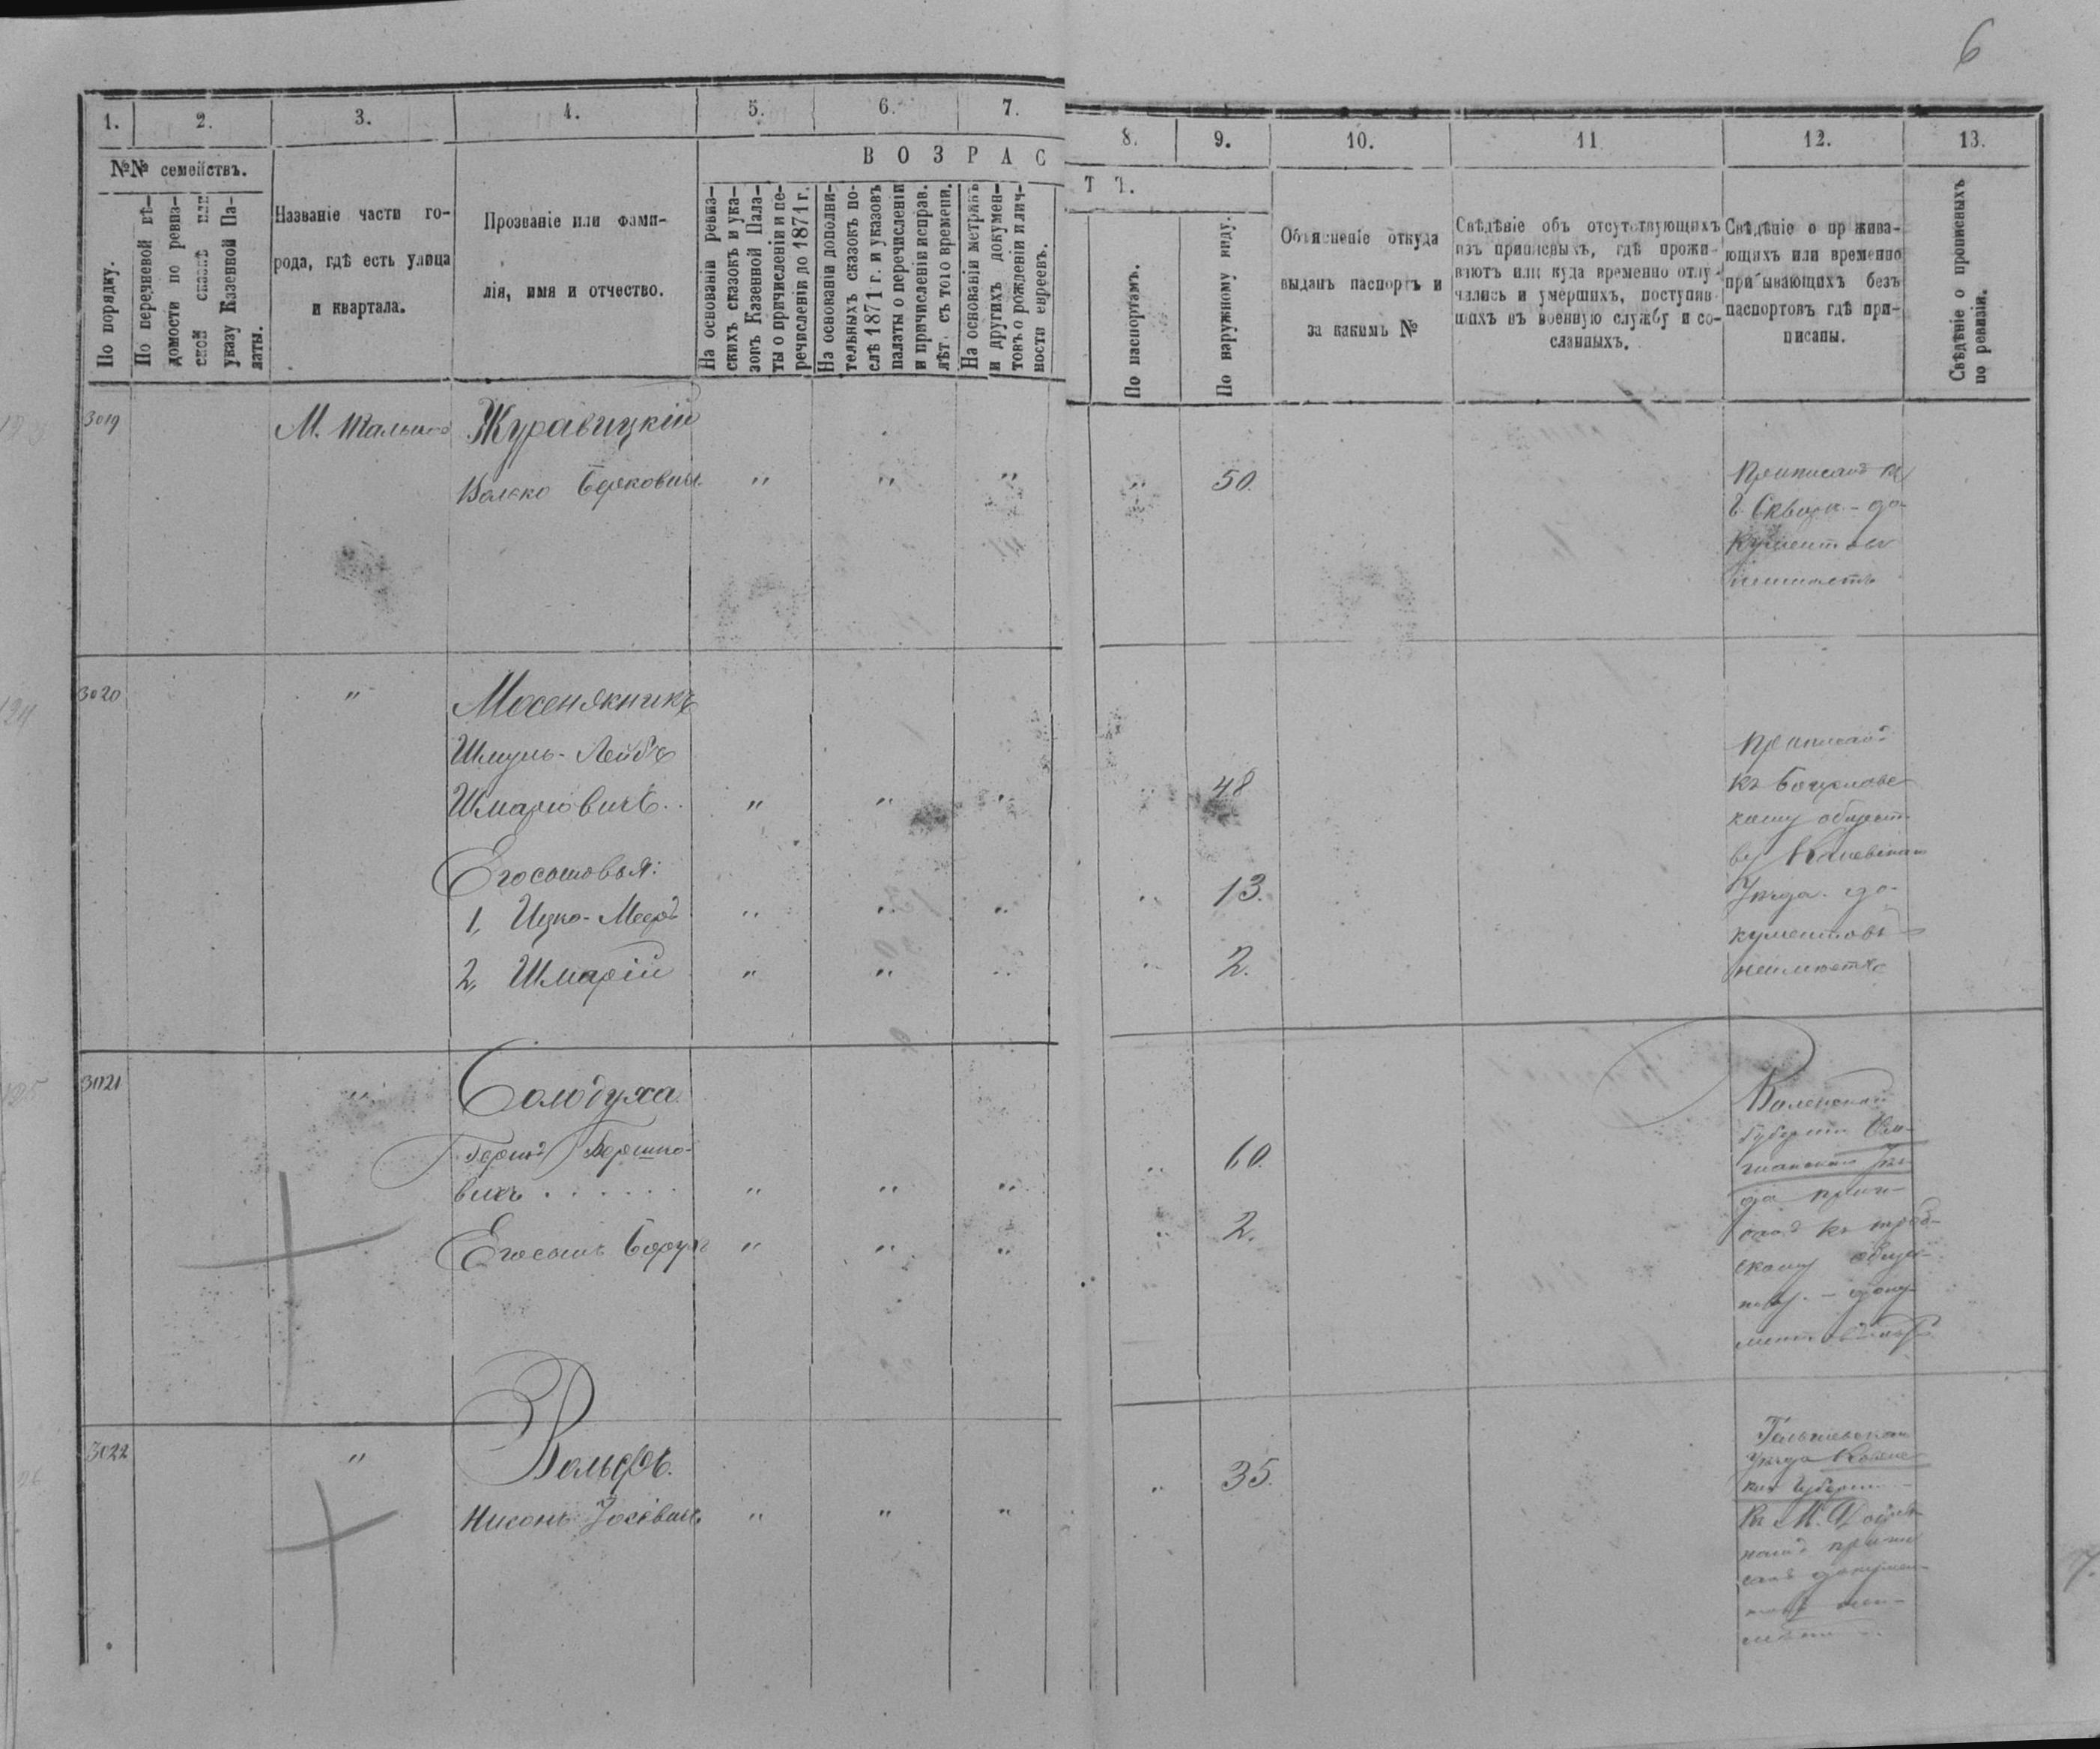 6
1. 2. 3. 4. 5. 6. 7. 8. 9. 10. 11 12. 13.
№№ семействъ.
По порядку.
По перечневой вѣ-
домости по ревиз-
ской сказкѣ или
указу Казенной Па-
латы.
Названіе части го-
рода, гдѣ есть улица
и квартала.
Прозваніе или фами-
лія, имя и отчество.
ВОЗРАС
ТЪ.
На основаніи ревиз-
скихъ сказокъ и ука-
зовъ Казенной Пала-
ты о причисленіи и пе-
речисленіи до 1871 г.
На основаніи дополни-
тельныхъ сказокъ по-
слѣ 1871 г. и указовъ
палаты о перечисленіи
и причисленіи исправ.
лѣт. съ того времени.
На основаніи метрикъ
и другихъ докумен-
товъ о рожденіи и лич-
ности евреевъ.
По паспортамъ.
По наружному виду.
Объясненіе откуда
выданъ паспортъ и
за какимъ №
Свѣдѣніе объ отсутствующихъ
изъ приписныхъ, гдѣ прожи-
ваютъ или куда временно отлу-
чались и умершихъ, поступив-
шихъ въ военную службу и со-
сланныхъ.
Свѣдѣніе о прожива-
ющихъ или временно
прибывающихъ безъ
паспортовъ гдѣ при-
писаны.
Свѣдѣніе о прописныхъ
по ревизіи.
3019 М. Тально Журавицкій
Волько Берковичъ " " " " 50.
Приписанъ къ
г. Сквирѣ - до-
кументовъ
неимѣетъ
3020 "
Шмуль-Лейбъ
Шмаріовичъ. " " " " 48
Егосыновья:
1, Ицко-Меер " " " " 13.
2, Шмарій " " " " 2.
Приписанъ
къ
кому общест-
ву Кіевскаго
Уѣзда - до-
кументовъ
неимѣетъ
3021 " Солодуха
Берко Гершко-
вичъ . . . . . . " " " " 60.
Егосынъ Борухъ " " " " 2.
Виленской
Губерніи
Уѣз-
да припи-
санъ къ
скому общес-
тву. - доку-
3022 " Вольфъ.
Нисонъ Іосевичъ " " " " 35.
Тельшевскаго
Уѣзда Ковенс
кой Губерніи
Къ М.
припи
санъ докумен-
7.